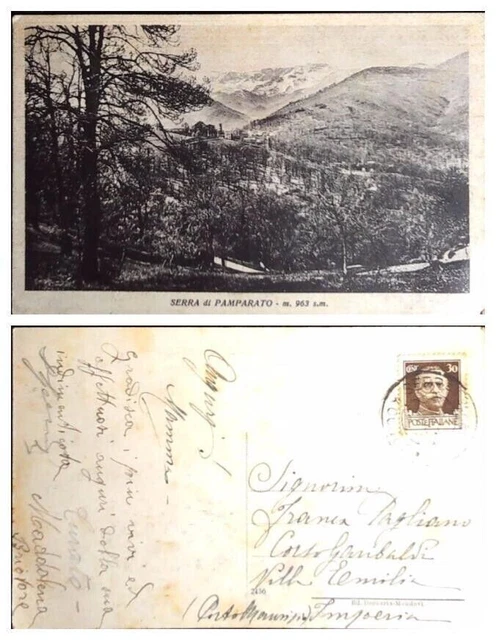 SERRA di PAMPARATO - m. 963 s.m.
Auguri!
Gradisca, i più vivi ed
affettuosi auguri della sua
indimenticata
Maddalena
30
POSTE ITALIANE
Signorina
Franca Pagliano
Corso Garibaldi
Villa Emilia
(Porto Maurizio) Imperia
2436